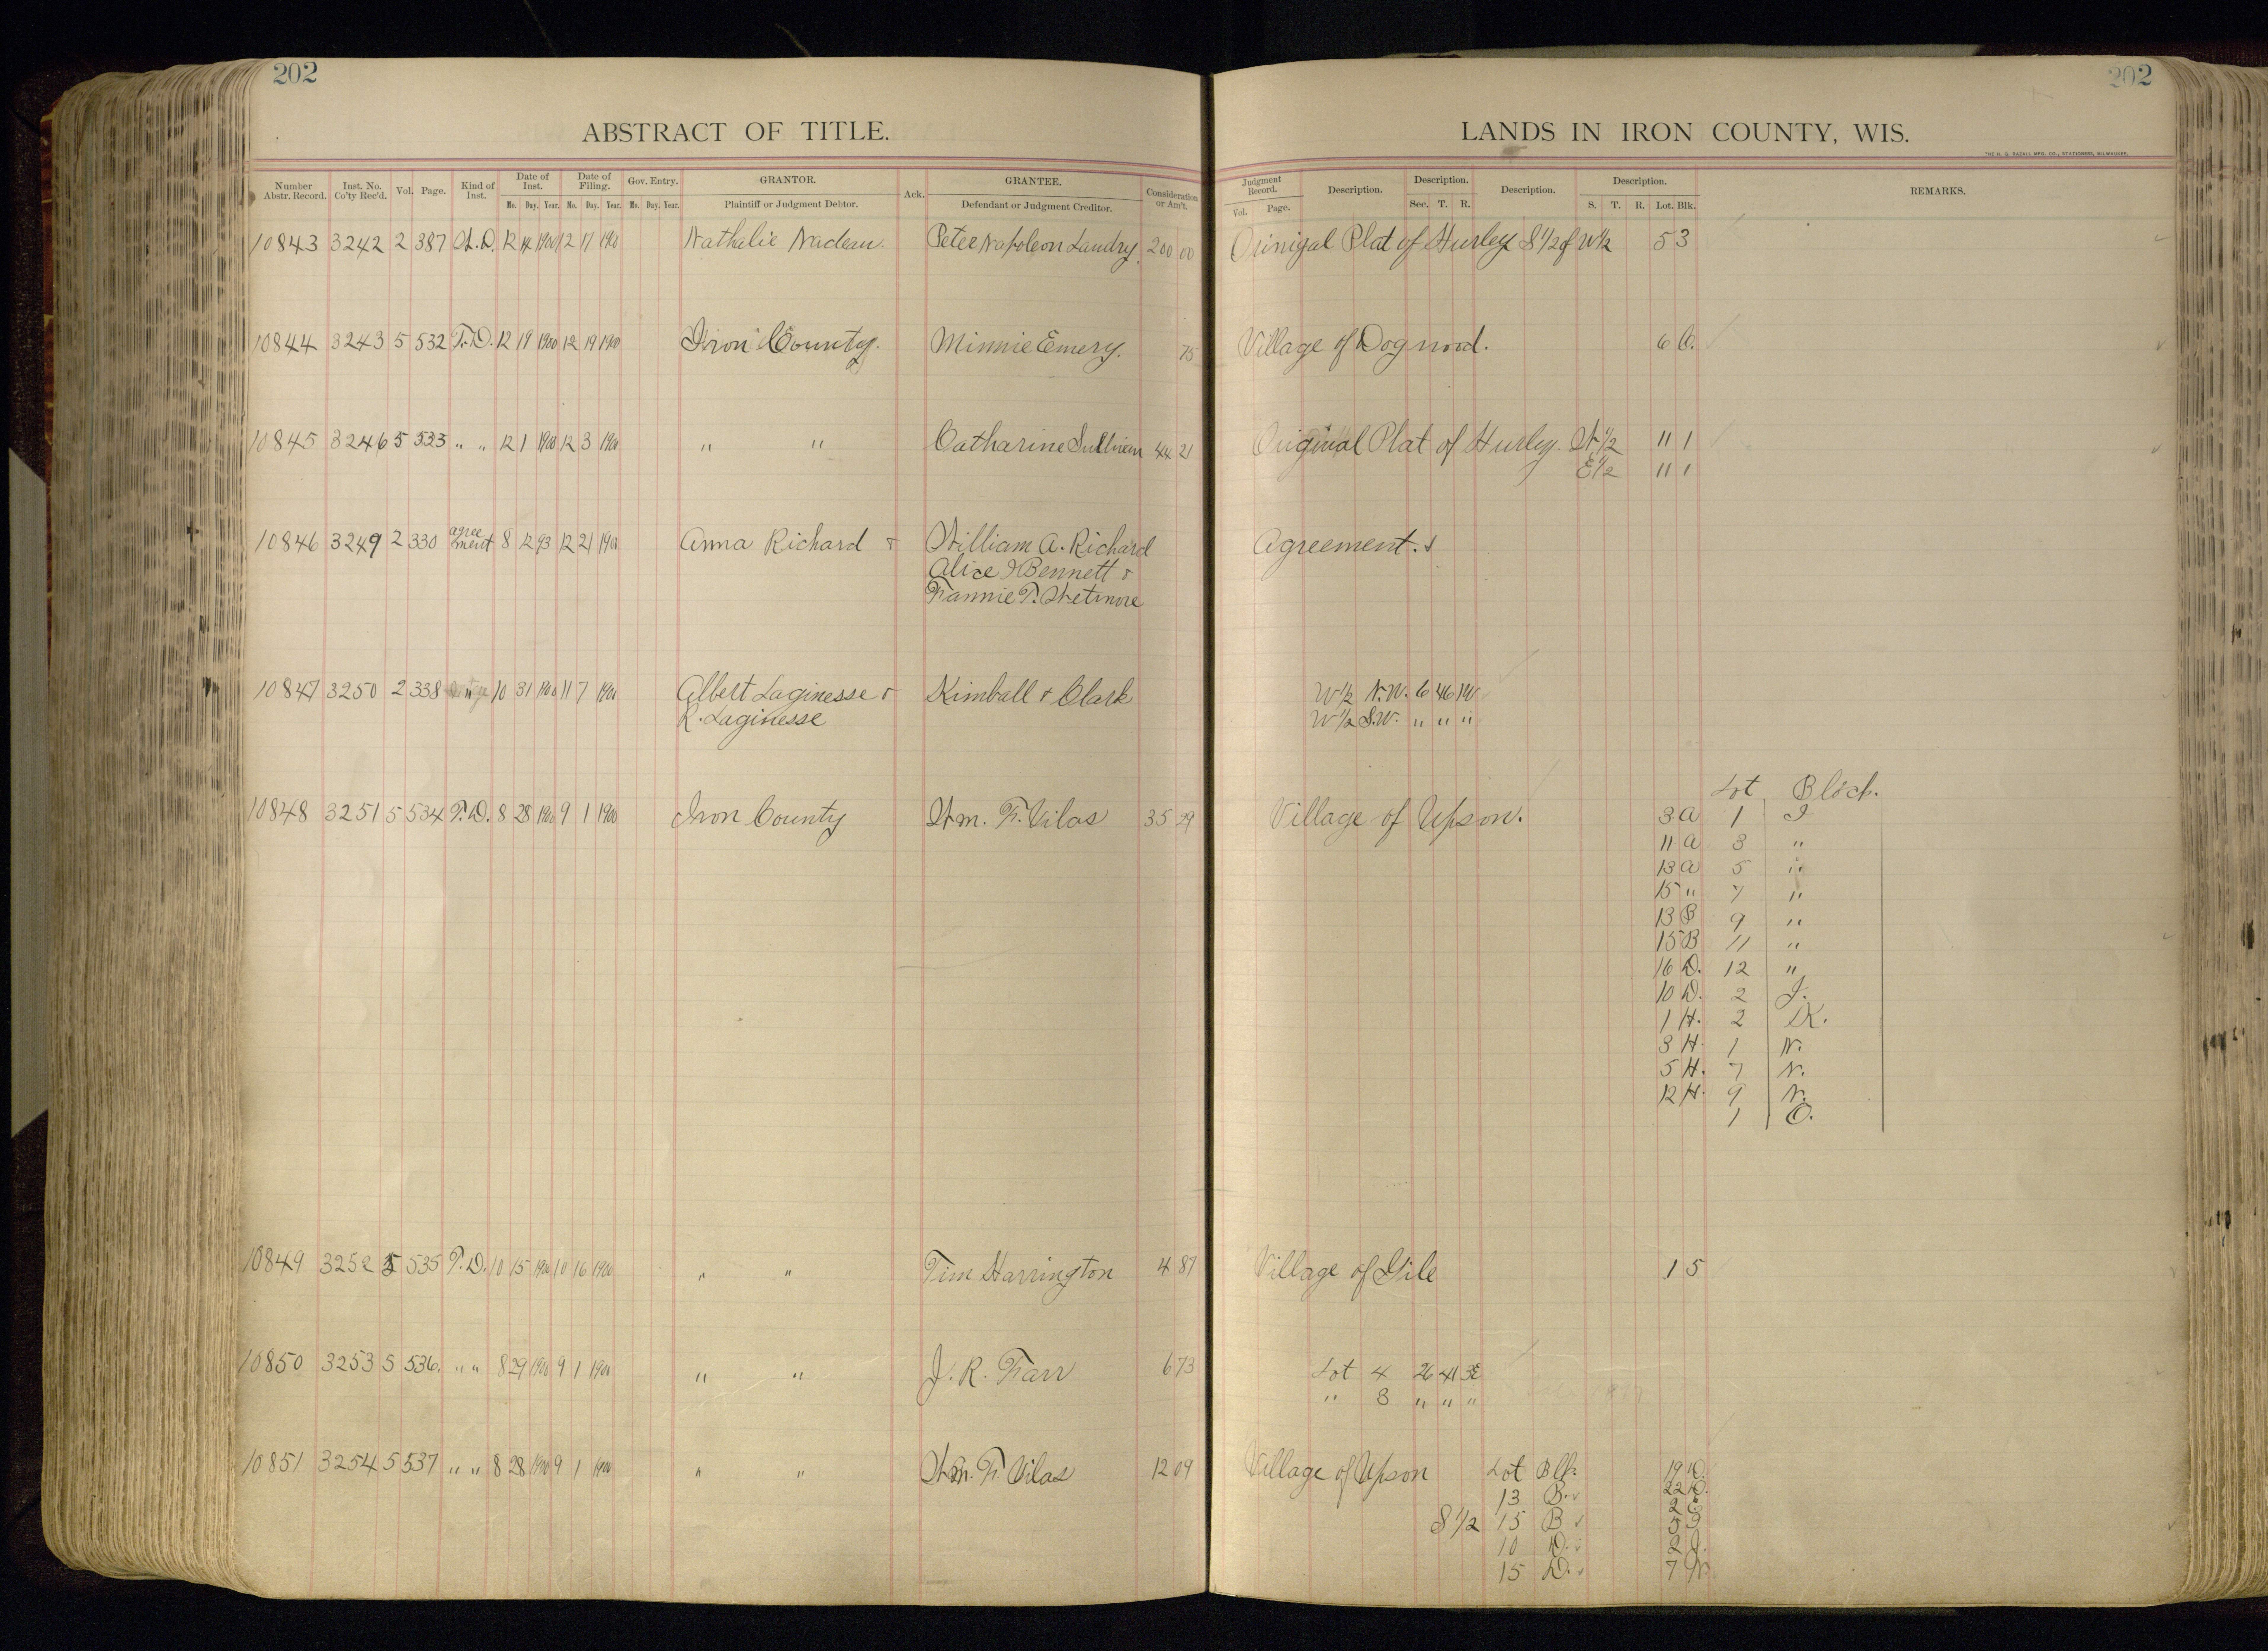 202
202
ABSTRACT OF TITLE.
LANDS IN IRON COUNTY, WIS.
THE H. G. RAZALL MFG. CO., STATIONERS, MILWAUKEE.
Number Abstr. Record. Inst. No. Co'ty Rec'd. Vol. Page. Kind of Inst. Date of Inst. Mo. Day. Year. Date of Filing. Mo. Day. Year. Gov. Entry. Mo. Day. Year. GRANTOR. Plaintiff or Judgment Debtor. Ack. GRANTEE. Defendant or Judgment Creditor. Consideration or Am't.
Judgment Record. Vol. Page. Description. Description. Sec. T. R. Description. Description. S. T. R. Lot. Blk. REMARKS.
10843 3242 2 387 12 14 1900 12 17 1900 Nathalie Nadeau. Peter Napoleon Landry. 200 00 Orinigal Plat of Hurley S 1/2 of W 1/2 5 3
10844 3243 5 532 T.D. 12 19 1900 12 19 1900 Iron County. Minnie Emery. 75 Village of Dogwood. 6
10845 3246 5 533 " " 12 1 1900 12 3 1900 " " Catharine Sullivan 44 21 Original Plat of Hurley. N 1/2 11 1
E 1/2 11 1
10846 3249 2 330 agreement 8 12 93 12 21 1900 Anna Richard & William A. Richard Agreement.
Alice I Bennett &
Fannie T. Wetmore
10847 3250 2 338 10 31 1900 11 7 1900 Albert Laginesse & Kimball & Clark W 1/2 N.W. 6 46 1W
R. Laginesse W 1/2 S.W. " " "
Lot Block.
10848 3251 5 534 T.D. 8 28 1900 9 1 1900 Iron County Wm. F. Vilas 35 29 Village of Upson. 3 A 1 I
11 A 3 "
13 A 5 "
15 " 7 "
13 B 9 "
15 B 11 "
16 D. 12 "
10 D. 2 J.
1 H. 2 K.
3 H. 1 N.
5 H. 7 N.
12 H. 9 N.
1 O.
10849 3252 5 535 T.D. 10 15 1900 10 16 1900 " " Tim Harrington 4 87 Village of Gile 1 5
10850 3253 5 536. " " 8 29 1900 9 1 1900 " " J. R. Farr 6 73 Lot 4 26 41 3E
" 3 " " "
10851 3254 5 537 " " 8 28 1900 9 1 1900 " " Wm. F. Vilas 12 09 Village of Upson Lot Blk. 19 D.
13 B. 22 D.
2 E
S 1/2 15 B 5 I
10 D. 2 J.
15 D. 7 N.